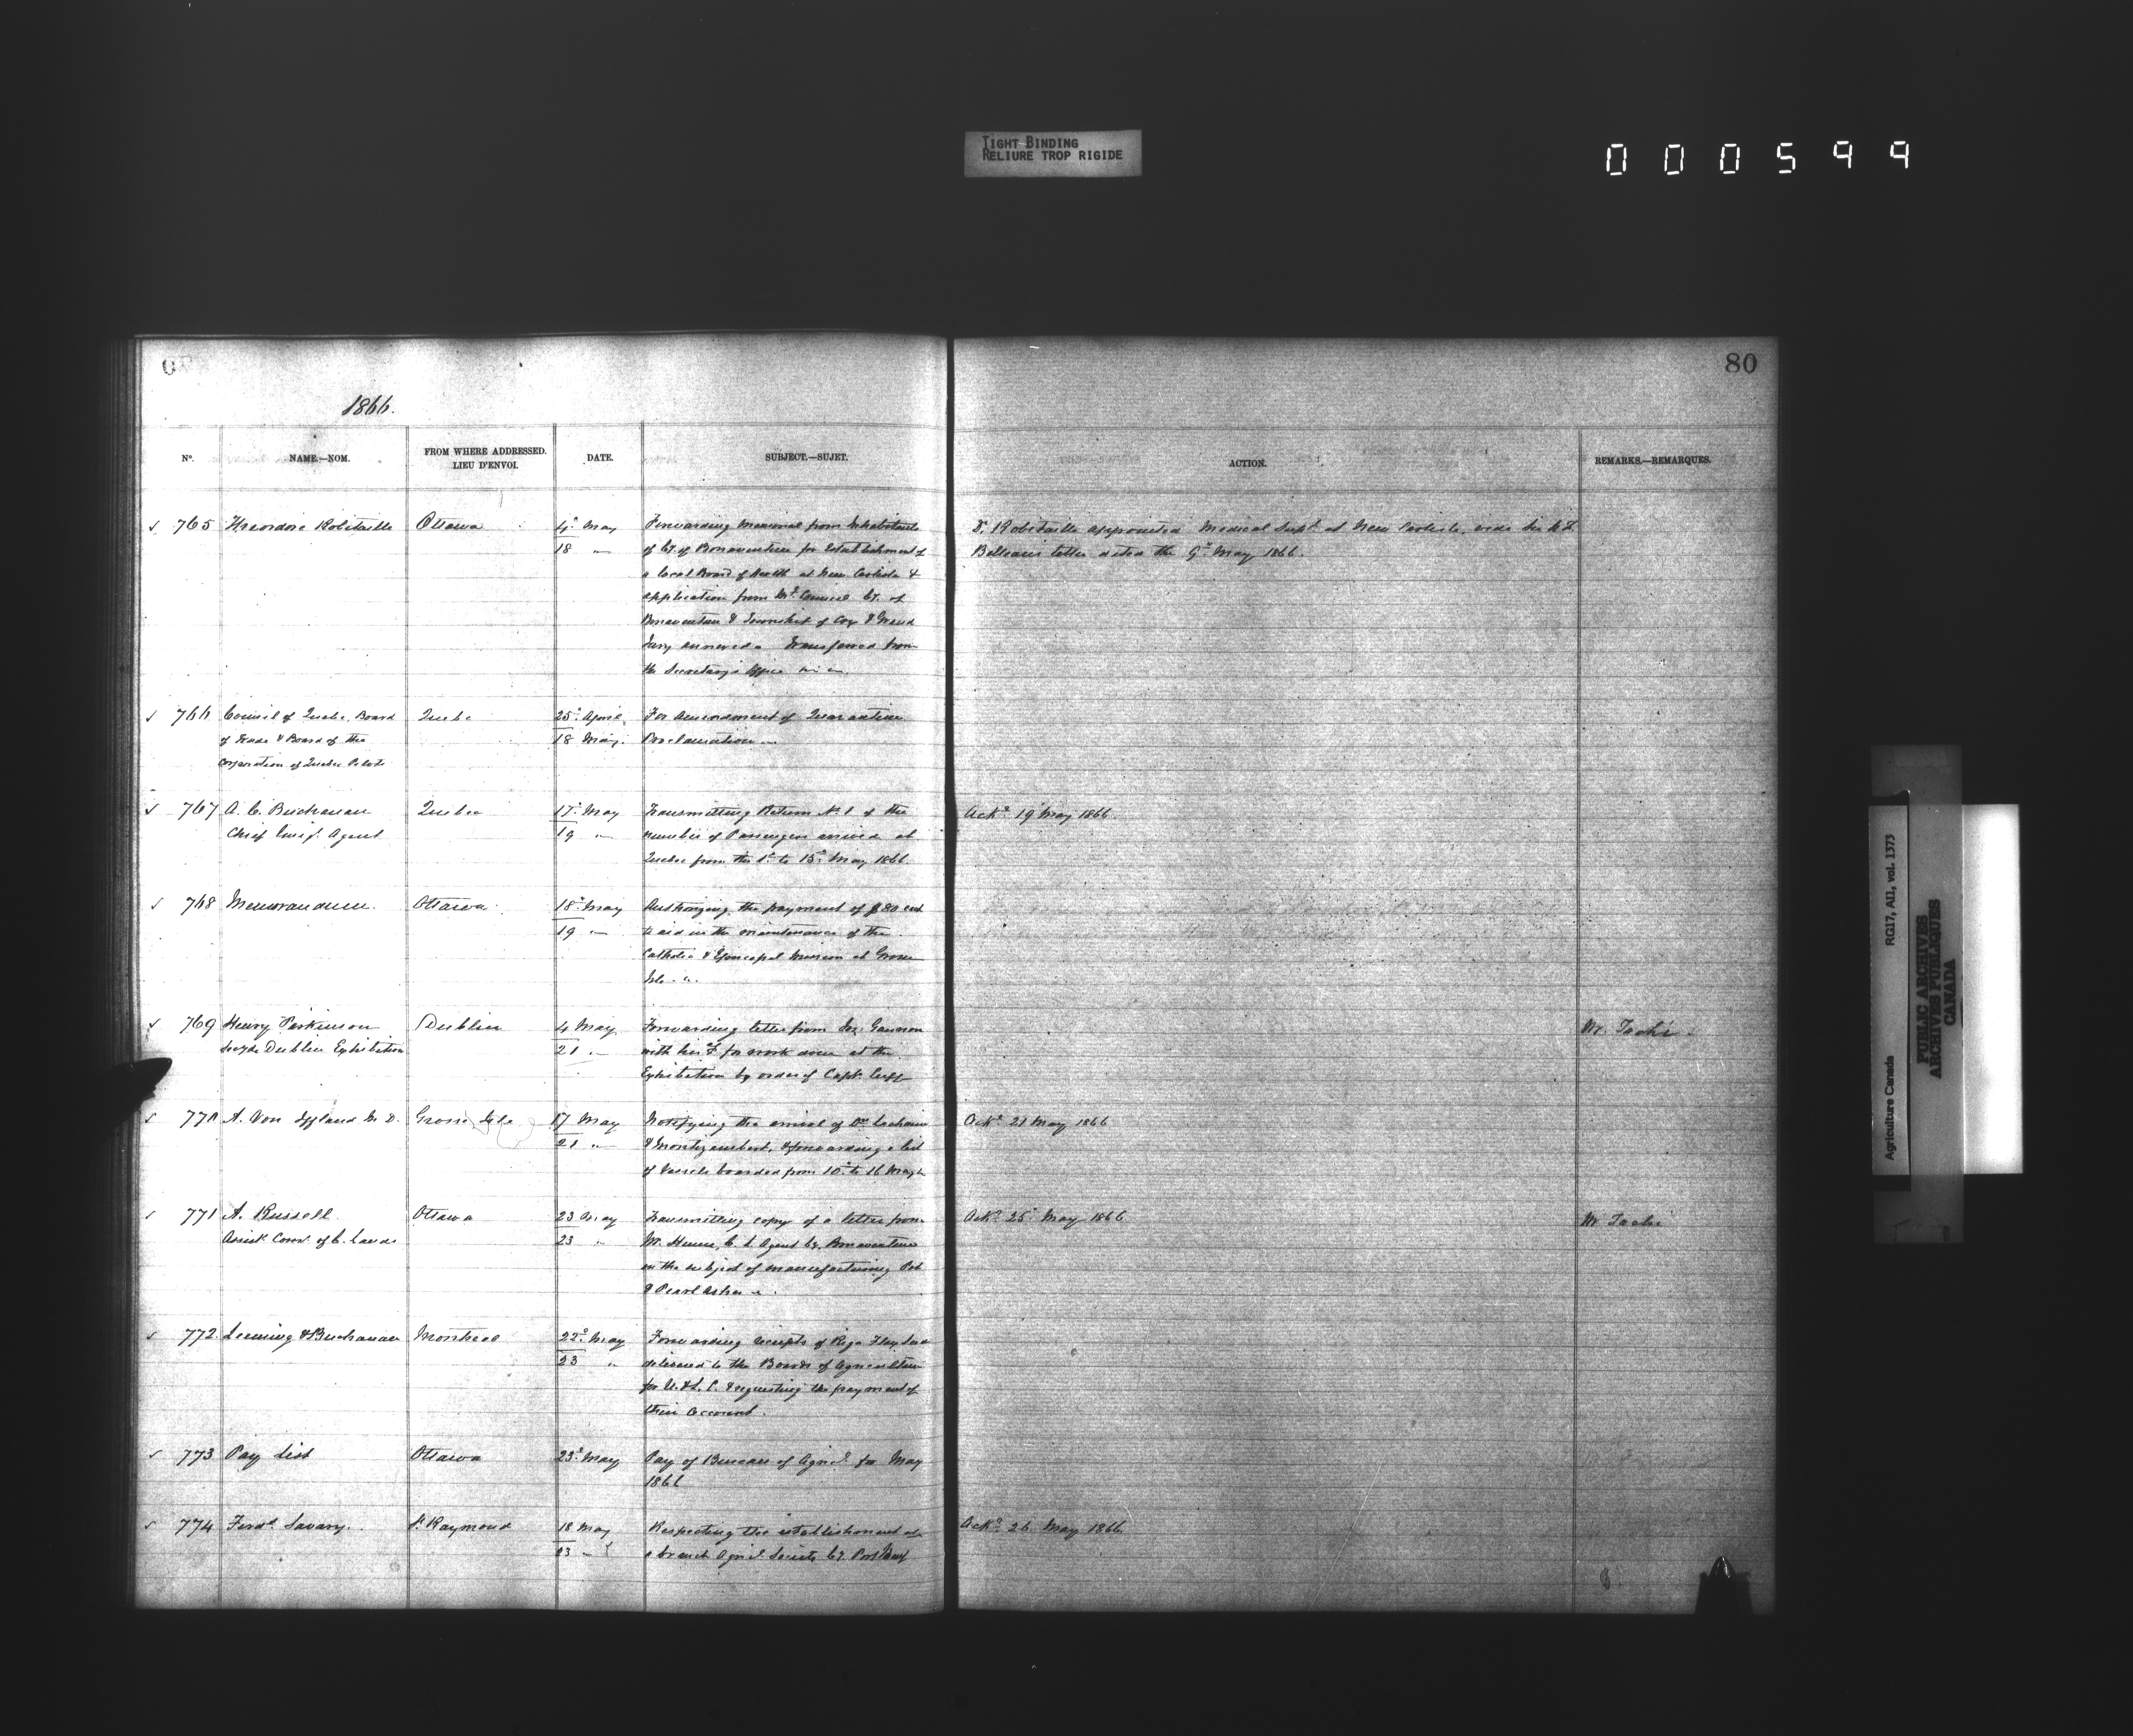 TIGHT BINDING
RELIURE TROP RIGIDE
000599
80
1866.
No.
NAME.—NOM.
FROM WHERE ADDRESSED.
LIEU D'ENVOI.
DATE.
SUBJECT.—SUJET.
ACTION.
REMARKS.—REMARQUES.
765 Theodore Robitaille Ottawa 4th May Forwarding Memorial from Inhabitants
18 " of Cy. of Bonaventure for Establishment of
a local Board of Health at New Carlisle &
application from Mpl. Council Cy. of
Bonaventure & Township of Cox & Grand
Jury annexed. Transferred from
the Secretary's Office
Dr. Robitaille appointed Medical Supt. at New Carlisle, vide Sir N. F.
Belleau's letter dated the 9th May, 1866.
766 Council of Quebec Board Quebec 25th April For amendment of Quarantine
of Trade & Board of the 18 May. Proclamation
Corporation of Quebec Pilots
767 A. C. Buchanan Quebec 17th May Transmitting Return No. 1 of the
Chief Emign. Agent 19 " number of Passengers arrived at
Quebec from the 1st to 15th May 1866.
Ackd. 19 May 1866.
768 Memorandum. Ottawa 18th May Authorizing the payment of $80 each
19 " to aid in the maintenance of the
Catholic & Episcopal Mission at Grosse
Isle
769 Henry Parkinson Dublin 4 May Forwarding letter from Jos. Gannon
Secy. Dublin Exhibition 21 " with his a/c for work done at the
Exhibition by order of Capt.
Mr. Taché
770 A. Von Iffland M. D. Grosse Isle 17 May Notifying the arrival of Drs.
21 " & Montizambert, & forwarding a list
of Vessels boarded from 10th to 16 May
Ackd. 21 May 1866
771 A. Russell Ottawa 23 May Transmitting copy of a letter from
Assist. Comr. of C. Lands 23 " Mr. Hume, C. L. Agent Cy. Bonaventure
on the subject of manufacturing Pot
& Pearl Ashes
Ackd. 25th May 1866
Mr Taché
772 Leeming & Buchanan Montreal 22d May Forwarding receipts of Riga Flax Seed
23 " delivered to the Boards of Agriculture
for U. & L. C. & requesting the payment of
their account.
773 Pay List Ottawa 23d May Pay of Bureau of Agricl. for May
1866
774 Ferdd. Savary. St. Raymond 18 May Respecting the establishment of
23 " a branch Agricl. Society Cy. Portneuf
Ackd. 26 May 1866
Agriculture Canada RG17, AII, vol. 1373
PUBLIC ARCHIVES
ARCHIVES PUBLIQUES
CANADA